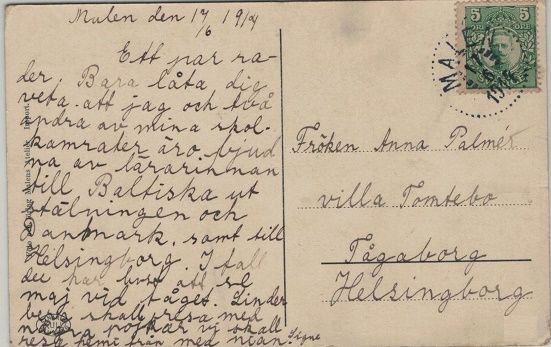 Malen den 17/6 1914
Ett par ra-
der. Bara låta dig
veta att jag och två
andra av mina skol-
kamrater äro bjud
na av lärarinnan
till Baltiska ut
ställningen och
Danmark, samt till
Helsingborg. I fall
du har lust att se
maj vid tåget. Linder
skall resa med
några pojkar vi skall
resa hem från med
Signe
5 5
MALEN
Fröken Anna Palmér
villa Tomtebo
Tågaborg
Helsingborg